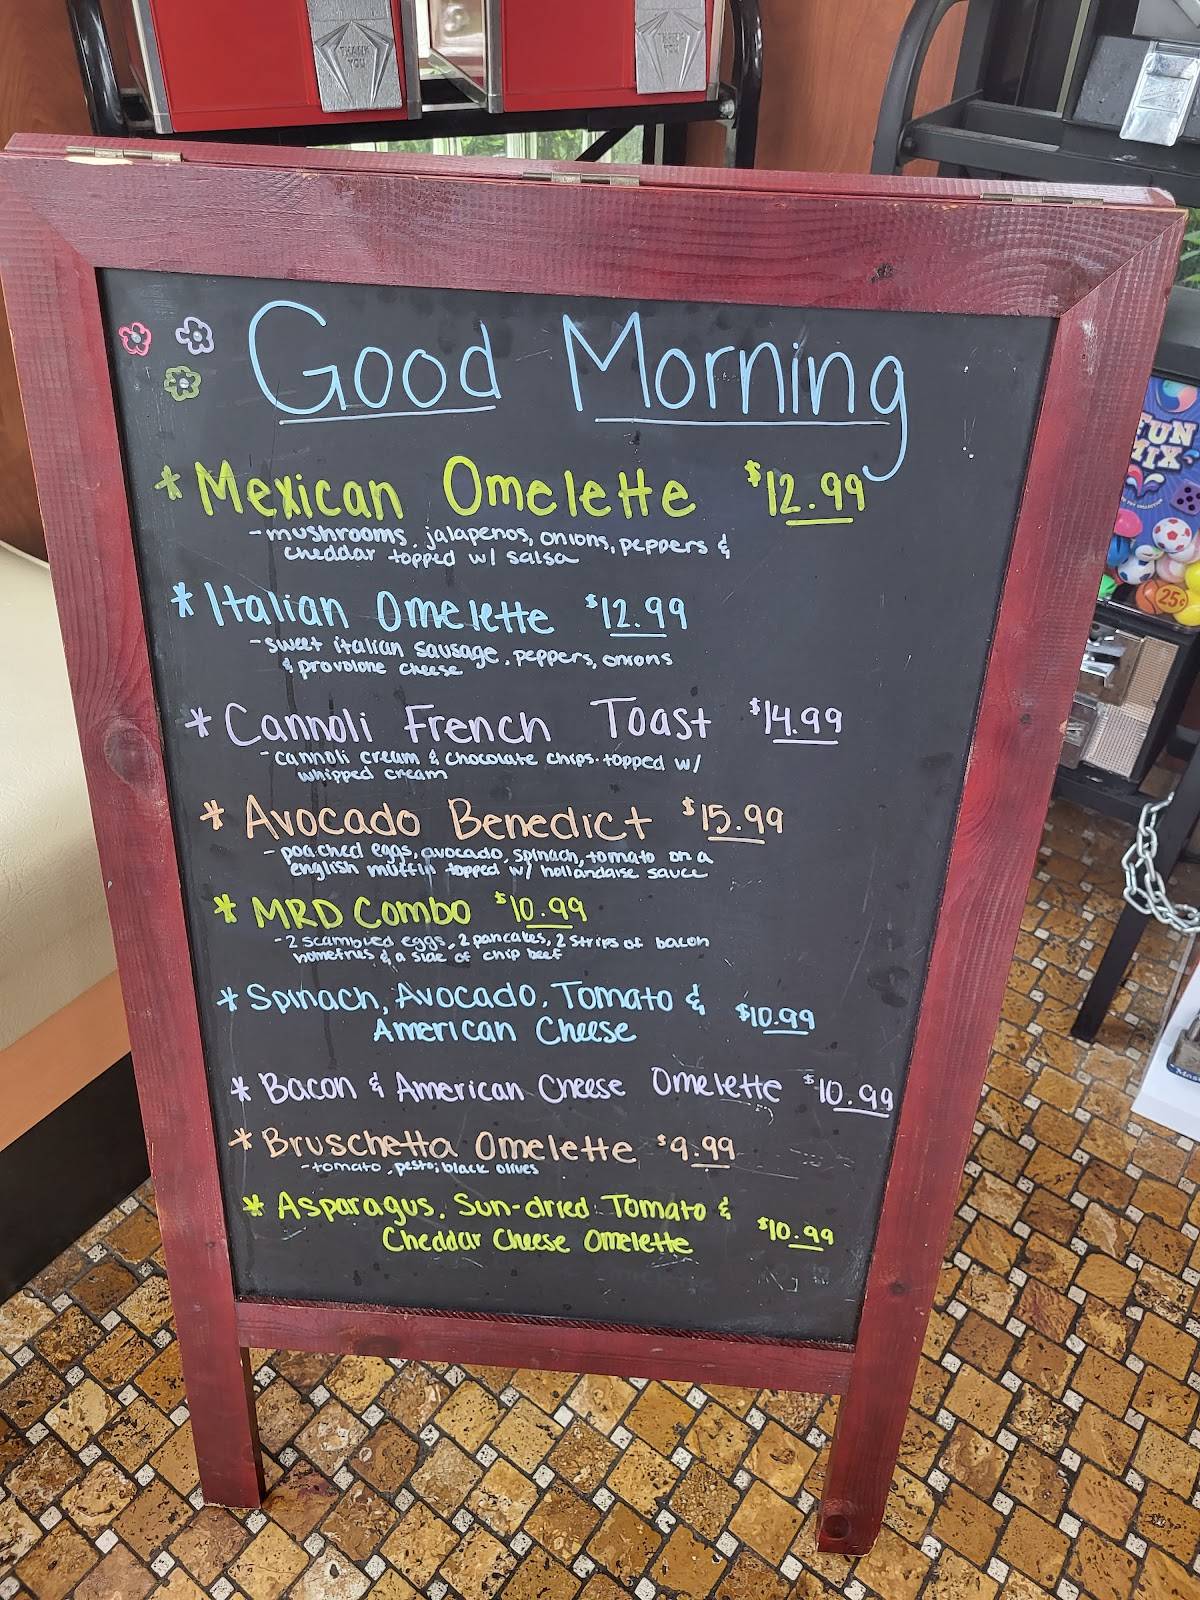 Good Morning
* Mexican Omelette $12.99
- mushrooms, jalapenos, onions, peppers &
cheddar topped w/ salsa
* Italian Omelette $12.99
- sweet italian sausage, peppers, onions
& provolone cheese
* Cannoli French Toast $14.99
- cannoli cream & chocolate chips topped w/
whipped cream
* Avocado Benedict $15.99
- poached eggs, avocado, spinach, tomato on a
english muffin topped w/ hollandaise sauce
* MRD Combo $10.99
- 2 scambled eggs, 2 pancakes, 2 strips of bacon
homefries & a side of chip beef
* Spinach, Avocado, Tomato & $10.99
American Cheese
* Bacon & American Cheese Omelette $10.99
* Bruschetta Omelette $9.99
- tomato, pesto, black olives
* Asparagus, Sun-dried Tomato & $10.99
Cheddar Cheese Omelette
FUN
MIX
25¢